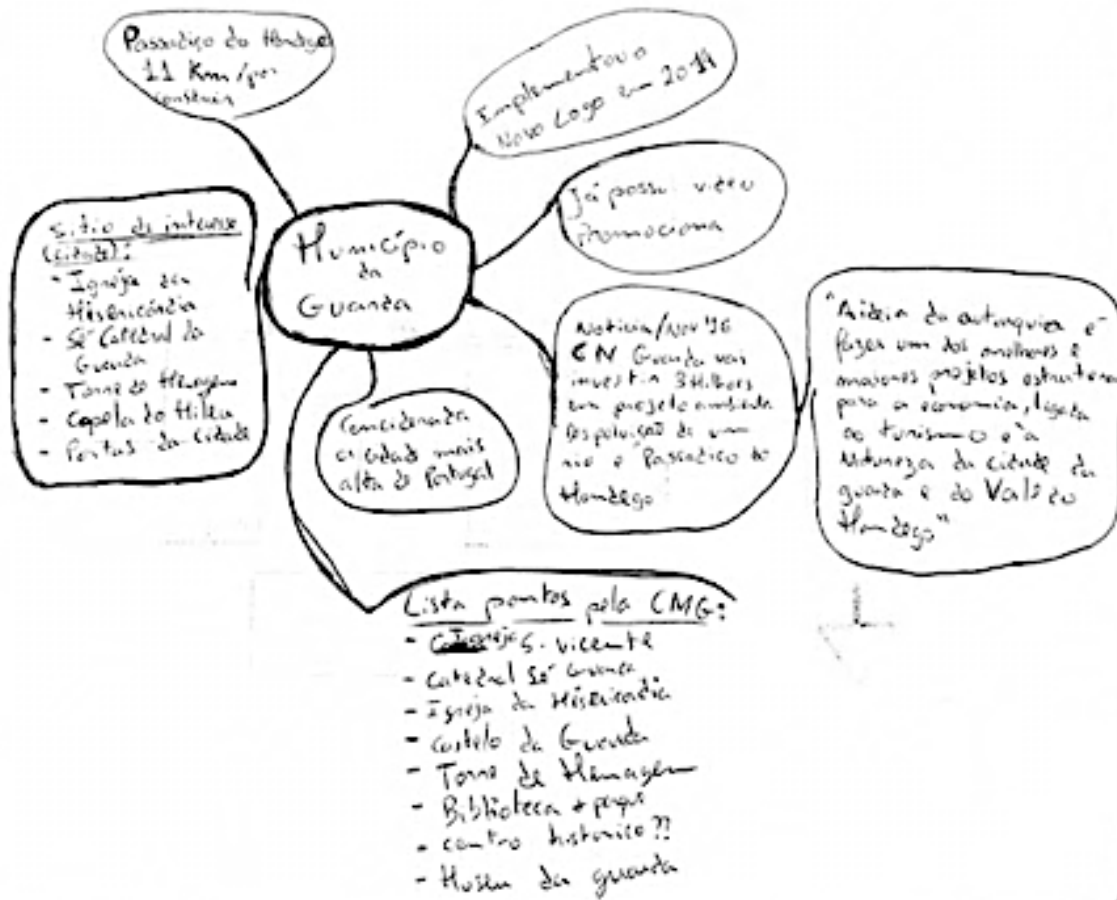 Passadiço do Mondego
11 Km / por
construir
Implementou o
Novo Logo em 2014
Já possui video
Promociona
Município
da
Guarda
Sitio de interesse
(cidade):
- Igreja da
Misericórdia
- Sé Catedral da
Guarda
- Torre de Menagem
- Capela do Mileu
- Portas da Cidade
Considerada
a cidade mais
alta de Portugal
Noticia/Nov '16
Guarda vai
investir 3 Milhões
em projeto ambiental
Despoluição de um
rio e Passadico do
Mondego
"A ideia da autarquia é
fazer um dos melhores e
maiores projetos
para a economia, ligada
ao turismo e à
Natureza da cidade da
guarda e do Vale do
Mondego"
Lista pontos pela CMG:
- Igreja S. vicente
- catedral Sé Guarda
- Igreja da Misericordia
- castelo da Guarda
- Torre de Menagem
- Biblioteca +
- centro historico??
- Museu da guarda